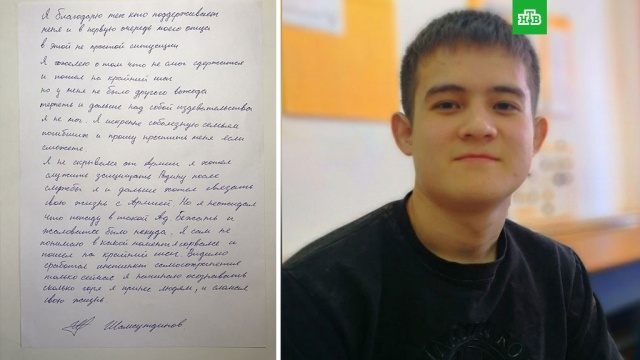 Я благодарю тех кто поддерживает
меня и в первую очередь моего отца
в этой не простой ситуации
Я сожалею о том что не смог сдержатся
и пошел на крайний шаг
но у меня не было другого выхода
терпеть и дальше над собой издевательства
я не мог. Я искренне соболезную семьям
погибших и прошу простить меня если
сможете.
Я не скрывался от Армии я хотел
служить защищать Родину после
службы я и дальше хотел связать
свою жизнь с Армией. Но я не ожидал
что попаду в такой Ад. Бежать и
жаловатся было некуда. Я сам не
понимаю в какой момент я сорвался и
пошел на крайний шаг. Видимо
сработал инстинкт самосохранения
только сейчас я начинаю осознавать
сколько горя я принес людям, и сломал
свою жизнь.
Шамсутдинов
НТВ